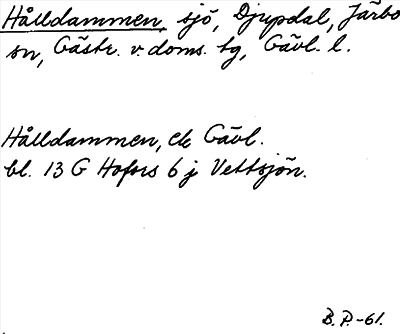 Hålldammen, sjö, Djupdal, Järbo
sn, Gästr. v. doms. tg, Gävl. l.
Hålldammen, ek Gävl.
bl. 13 G Hofors 6 j Vettsjön.
B. P. -61.